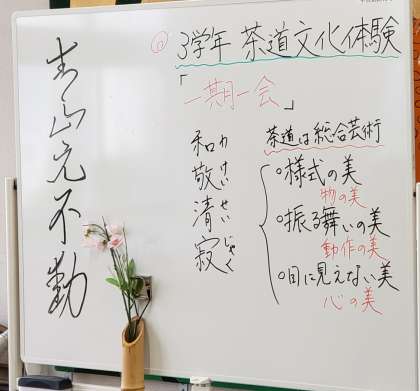 ◎ 3学年 茶道文化体験
「一期一会」
茶道は総合芸術
○様式の美
物の美
○振る舞いの美
動作の美
○目に見えない美
心の美
和敬清寂
わけいせいじゃく
青山元不動